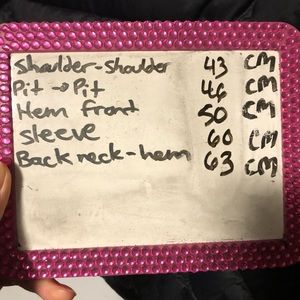 Shoulder-shoulder 43 CM
Pit → Pit 46 CM
Hem front 50 CM
sleeve 60 CM
Back neck-hem 63 CM